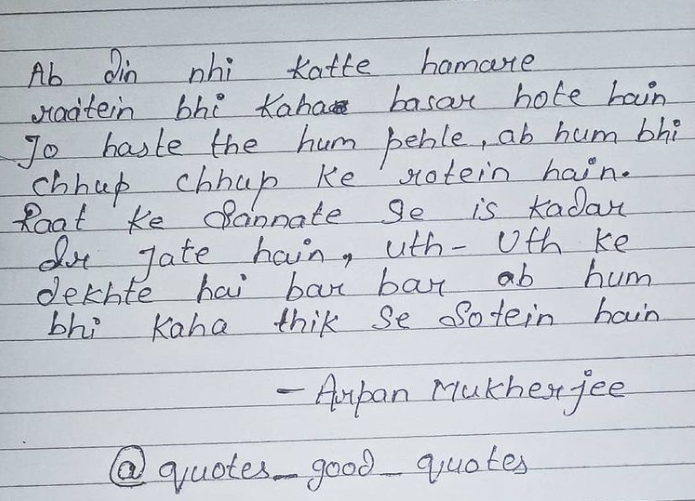 Ab din nhi katte hamare
raatein bhi kaha basar hote hain
Jo haste the hum pehle, ab hum bhi
chhup chhup ke rotein hain.
Raat ke Sannate se is kadar
dr jate hain, uth-Uth ke
dekhte hai bar bar ab hum
bhi kaha thik se Sotein hain
- Arpan Mukherjee
@quotes_good_quotes